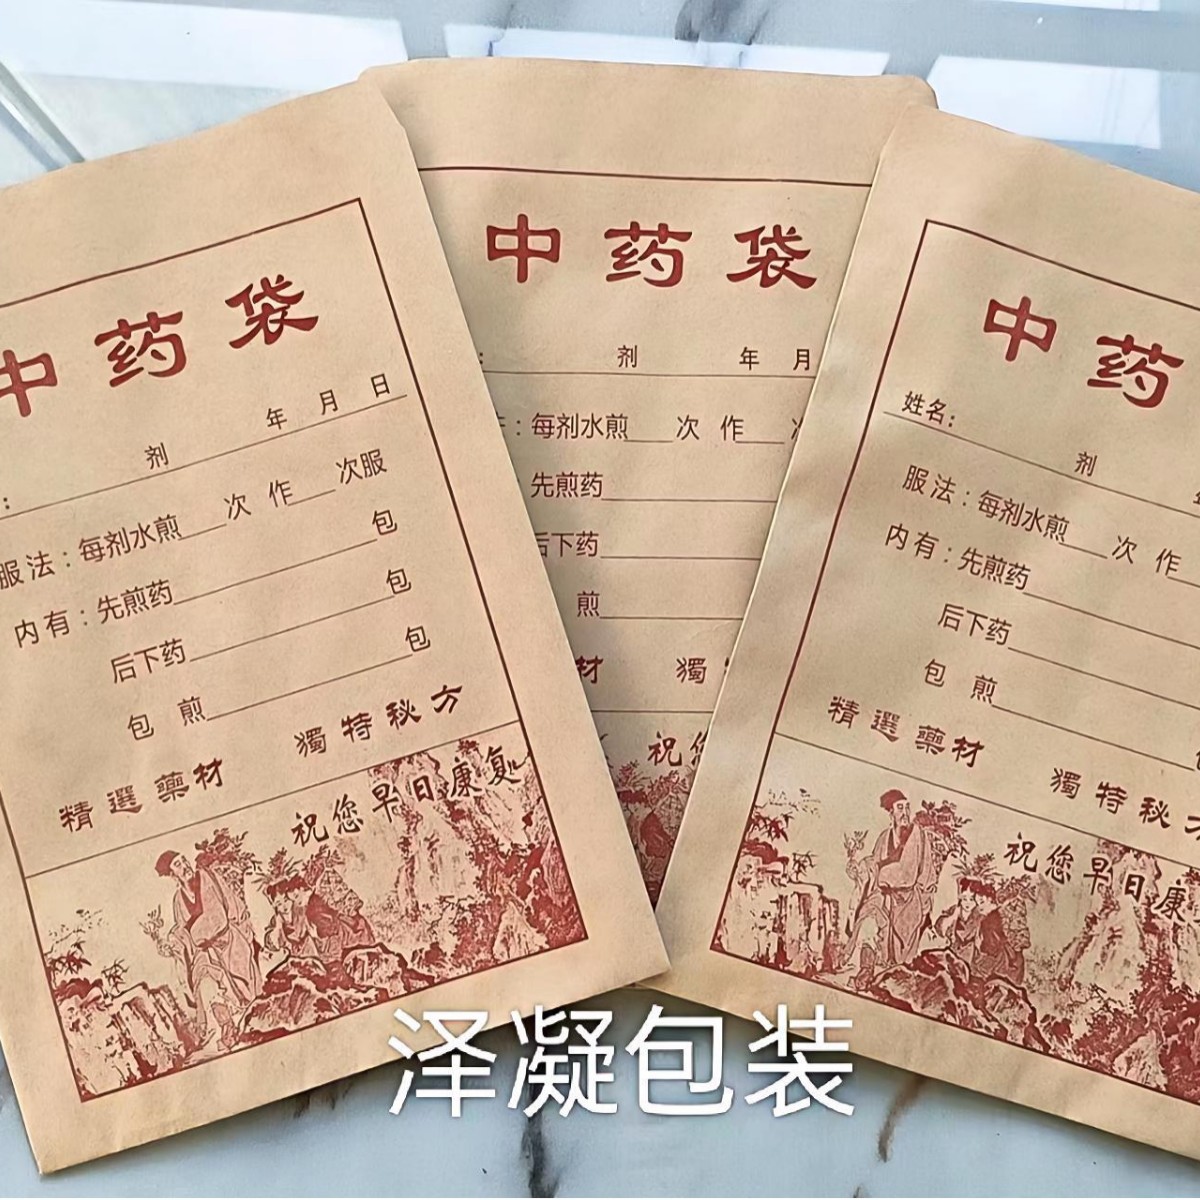 中药袋
: 剂 年 月 日
服法：每剂水煎 次 作 次服
内有：先煎药 包
后下药 包
包煎 包
精選藥材 獨特秘方
祝您早日康复
中药袋
: 剂 年 月
：每剂水煎 次 作
先煎药
后下药
煎
材 獨
祝您
中药
姓名：
剂
服法：每剂水煎 次 作
内有：先煎药
后下药
包煎
精選藥材 獨特秘
祝您早日康
泽凝包装